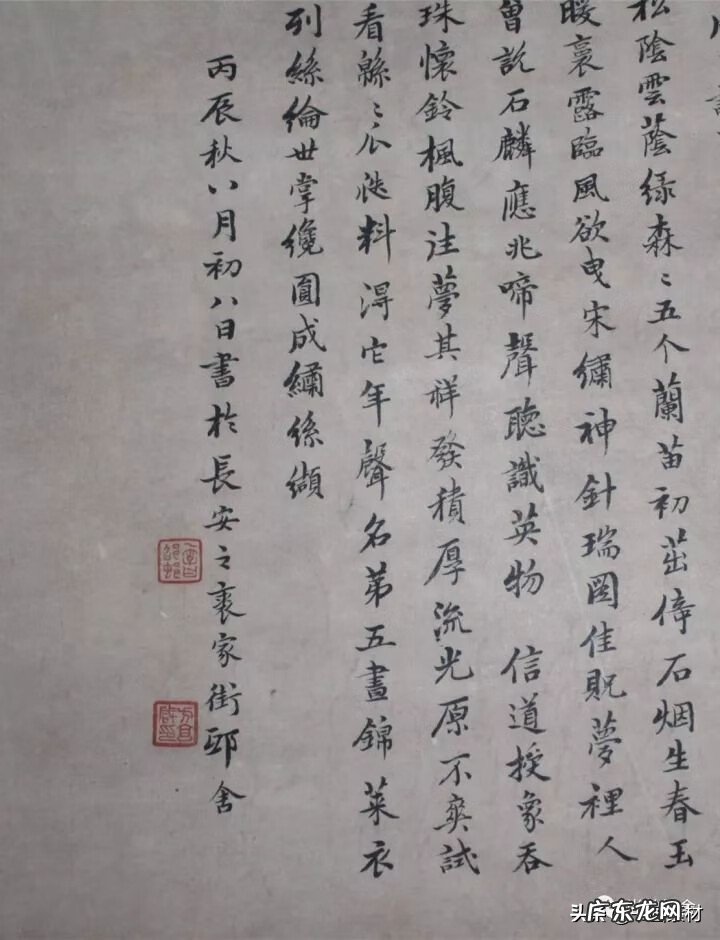 松陰雲蔭綠森〻五个蘭苗初茁倚石烟生春玉
暖裏露臨風欲曳宋繡神針瑞圖佳貺夢裡人
曾說石麟應兆啼聲聽識英物 信道授象吞
珠懷鈴楓腹注夢其祥發積厚流光原不爽試
看緜〻瓜瓞料得它年聲名弟五晝錦萊衣
列絲綸世掌纔圓成繡絲纈
丙辰秋八月初八日書於長安之裘家街邸舍
头条
广东龙网